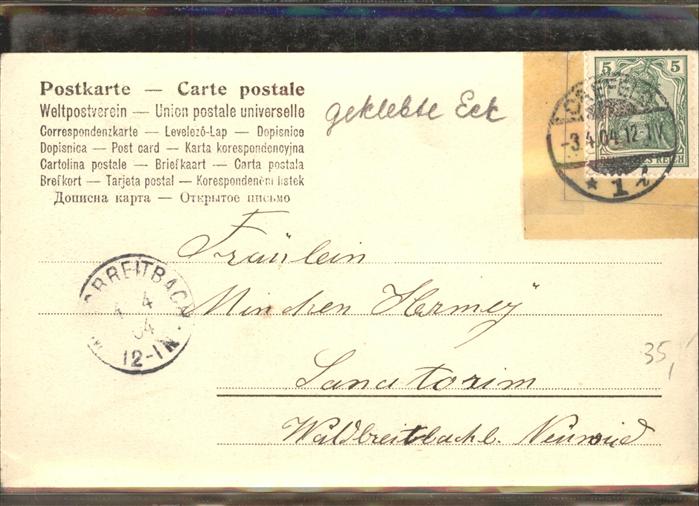 Postkarte — Carte postale
Weltpostverein — Union postale universelle
Correspondenzkarte — Levelező-Lap — Dopisnice
Dopisnica — Post card — Karta korespondencyjna
Cartolina postale — Briefkaart — Carta postala
Brefkort — Tarjeta postal — Korespondenční lístek
Дописна карта — Открытое письмо
geklebte Eck
5 5
CREFELD
-3.4.04.12-1N
DEUTSCHES REICH
* 1 i
Fräulein
Minchen Hermey
BREITBACH
4 4
04
12-1N.
35,-
Sanatorium
Waldbreitbach b. Neuwied